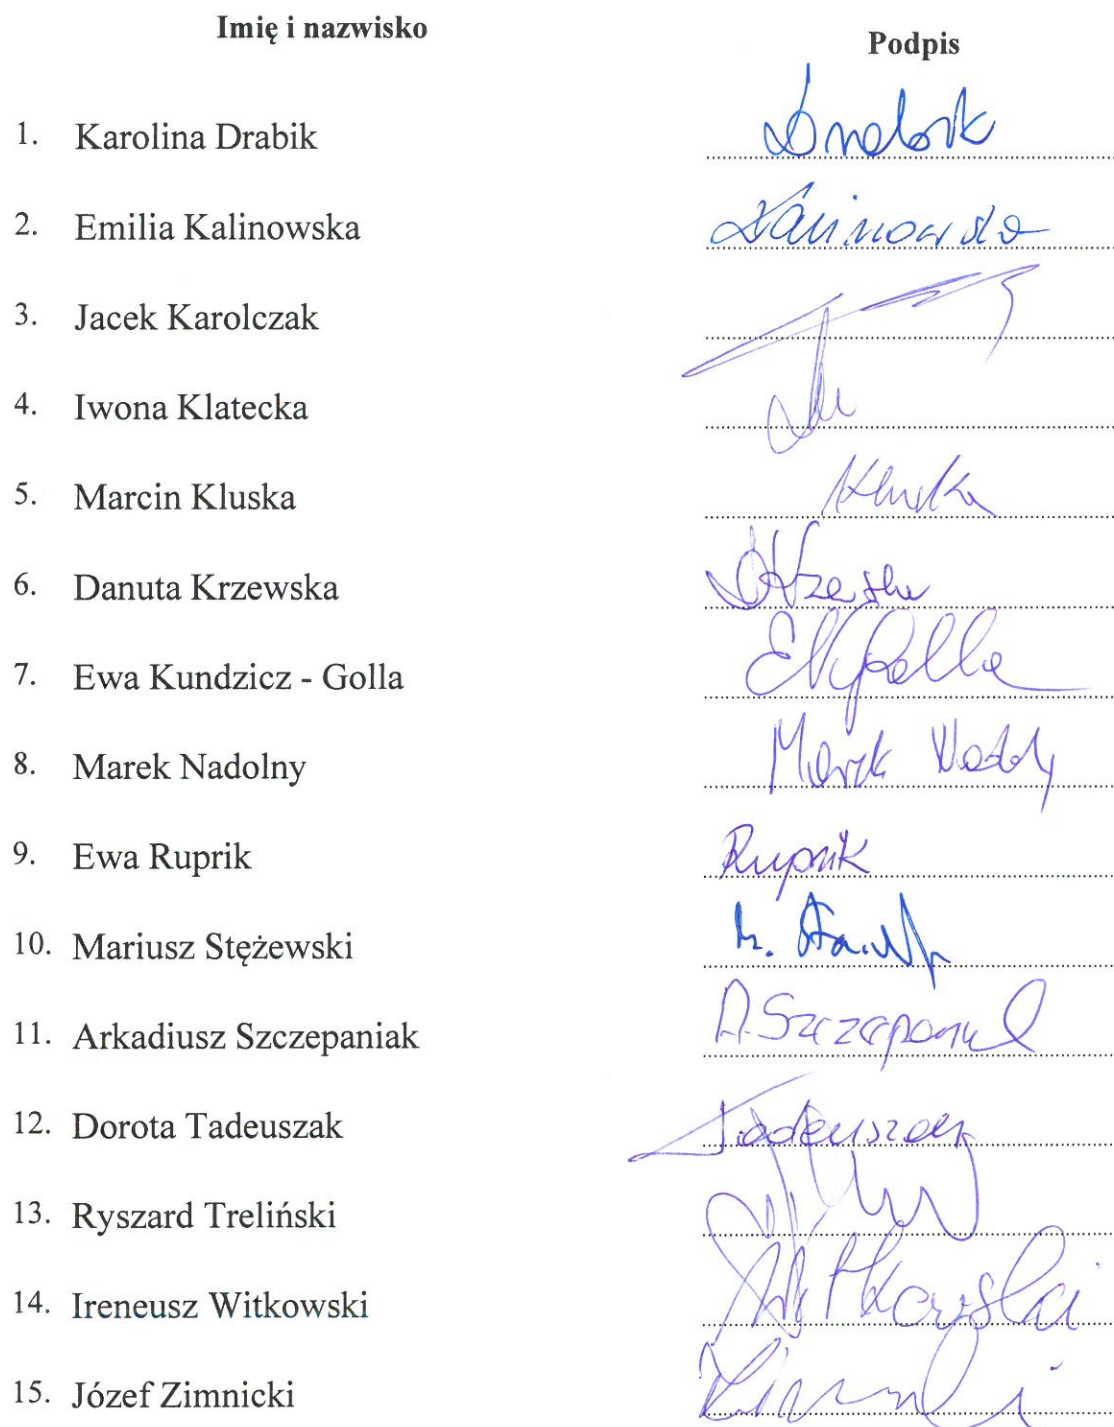 Imię i nazwisko Podpis
1. Karolina Drabik Drabik
2. Emilia Kalinowska Kalinowska
3. Jacek Karolczak
4. Iwona Klatecka
5. Marcin Kluska Kluska
6. Danuta Krzewska
7. Ewa Kundzicz - Golla EKGolla
8. Marek Nadolny Marek
9. Ewa Ruprik Ruprik
10. Mariusz Stężewski
11. Arkadiusz Szczepaniak A. Szczepaniak
12. Dorota Tadeuszak Tadeuszak
13. Ryszard Treliński
14. Ireneusz Witkowski Witkowski
15. Józef Zimnicki